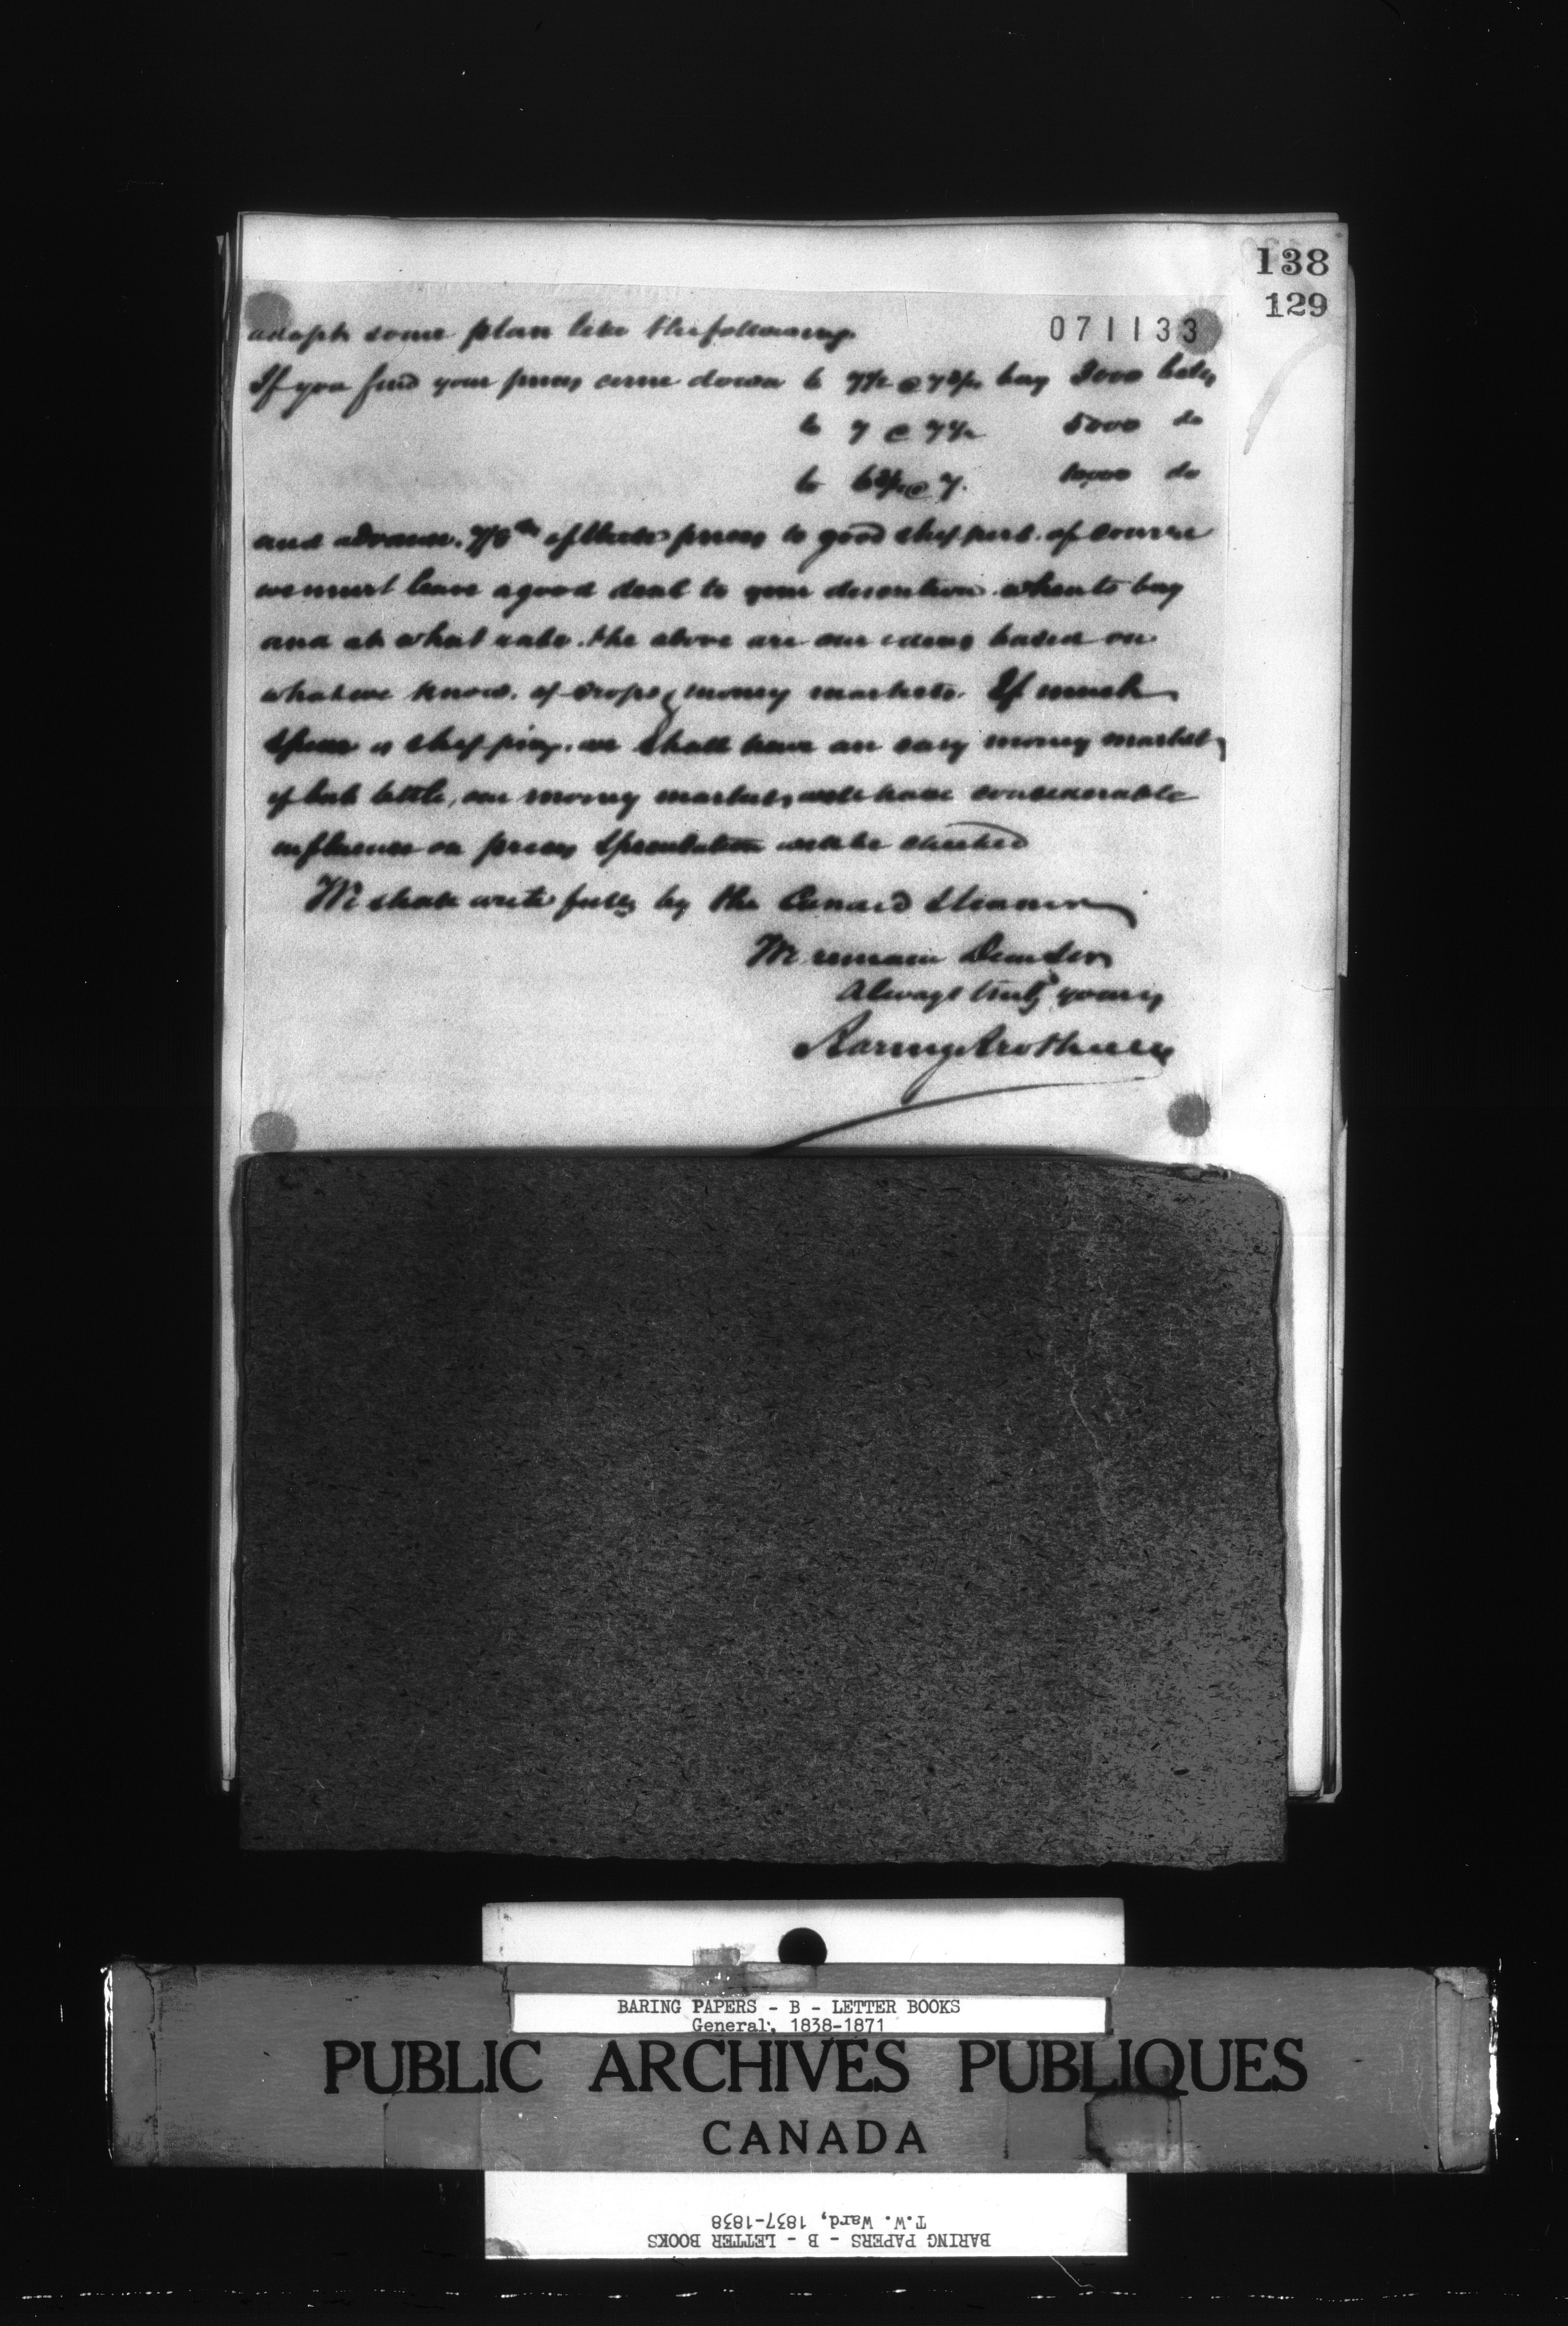 138
129
071133
adopt some plan like the following.
If you find your prices come down to 7½ @ 7¾ buy 3000 bales
to 7 @ 7½ 5000 do
to 6¾ @ 7. 10,000 do
and advance 7/8ths of these prices to good shippers. of course
we must leave a good deal to your discretion when to buy
and at what rate. the above are our ideas based on
what we know. of crops & money markets. If much
specie is shipping. we shall have an easy money market,
if but little, our money market, will have considerable
influence on prices & speculation will be checked
We shall write fully by the Cunard Steamer
We remain Dear Sirs
Always truly yours
Baring Brothers
BARING PAPERS - B - LETTER BOOKS
General, 1838-1871
PUBLIC ARCHIVES PUBLIQUES
CANADA
T.W. Ward, 1837-1838
BARING PAPERS - B - LETTER BOOKS